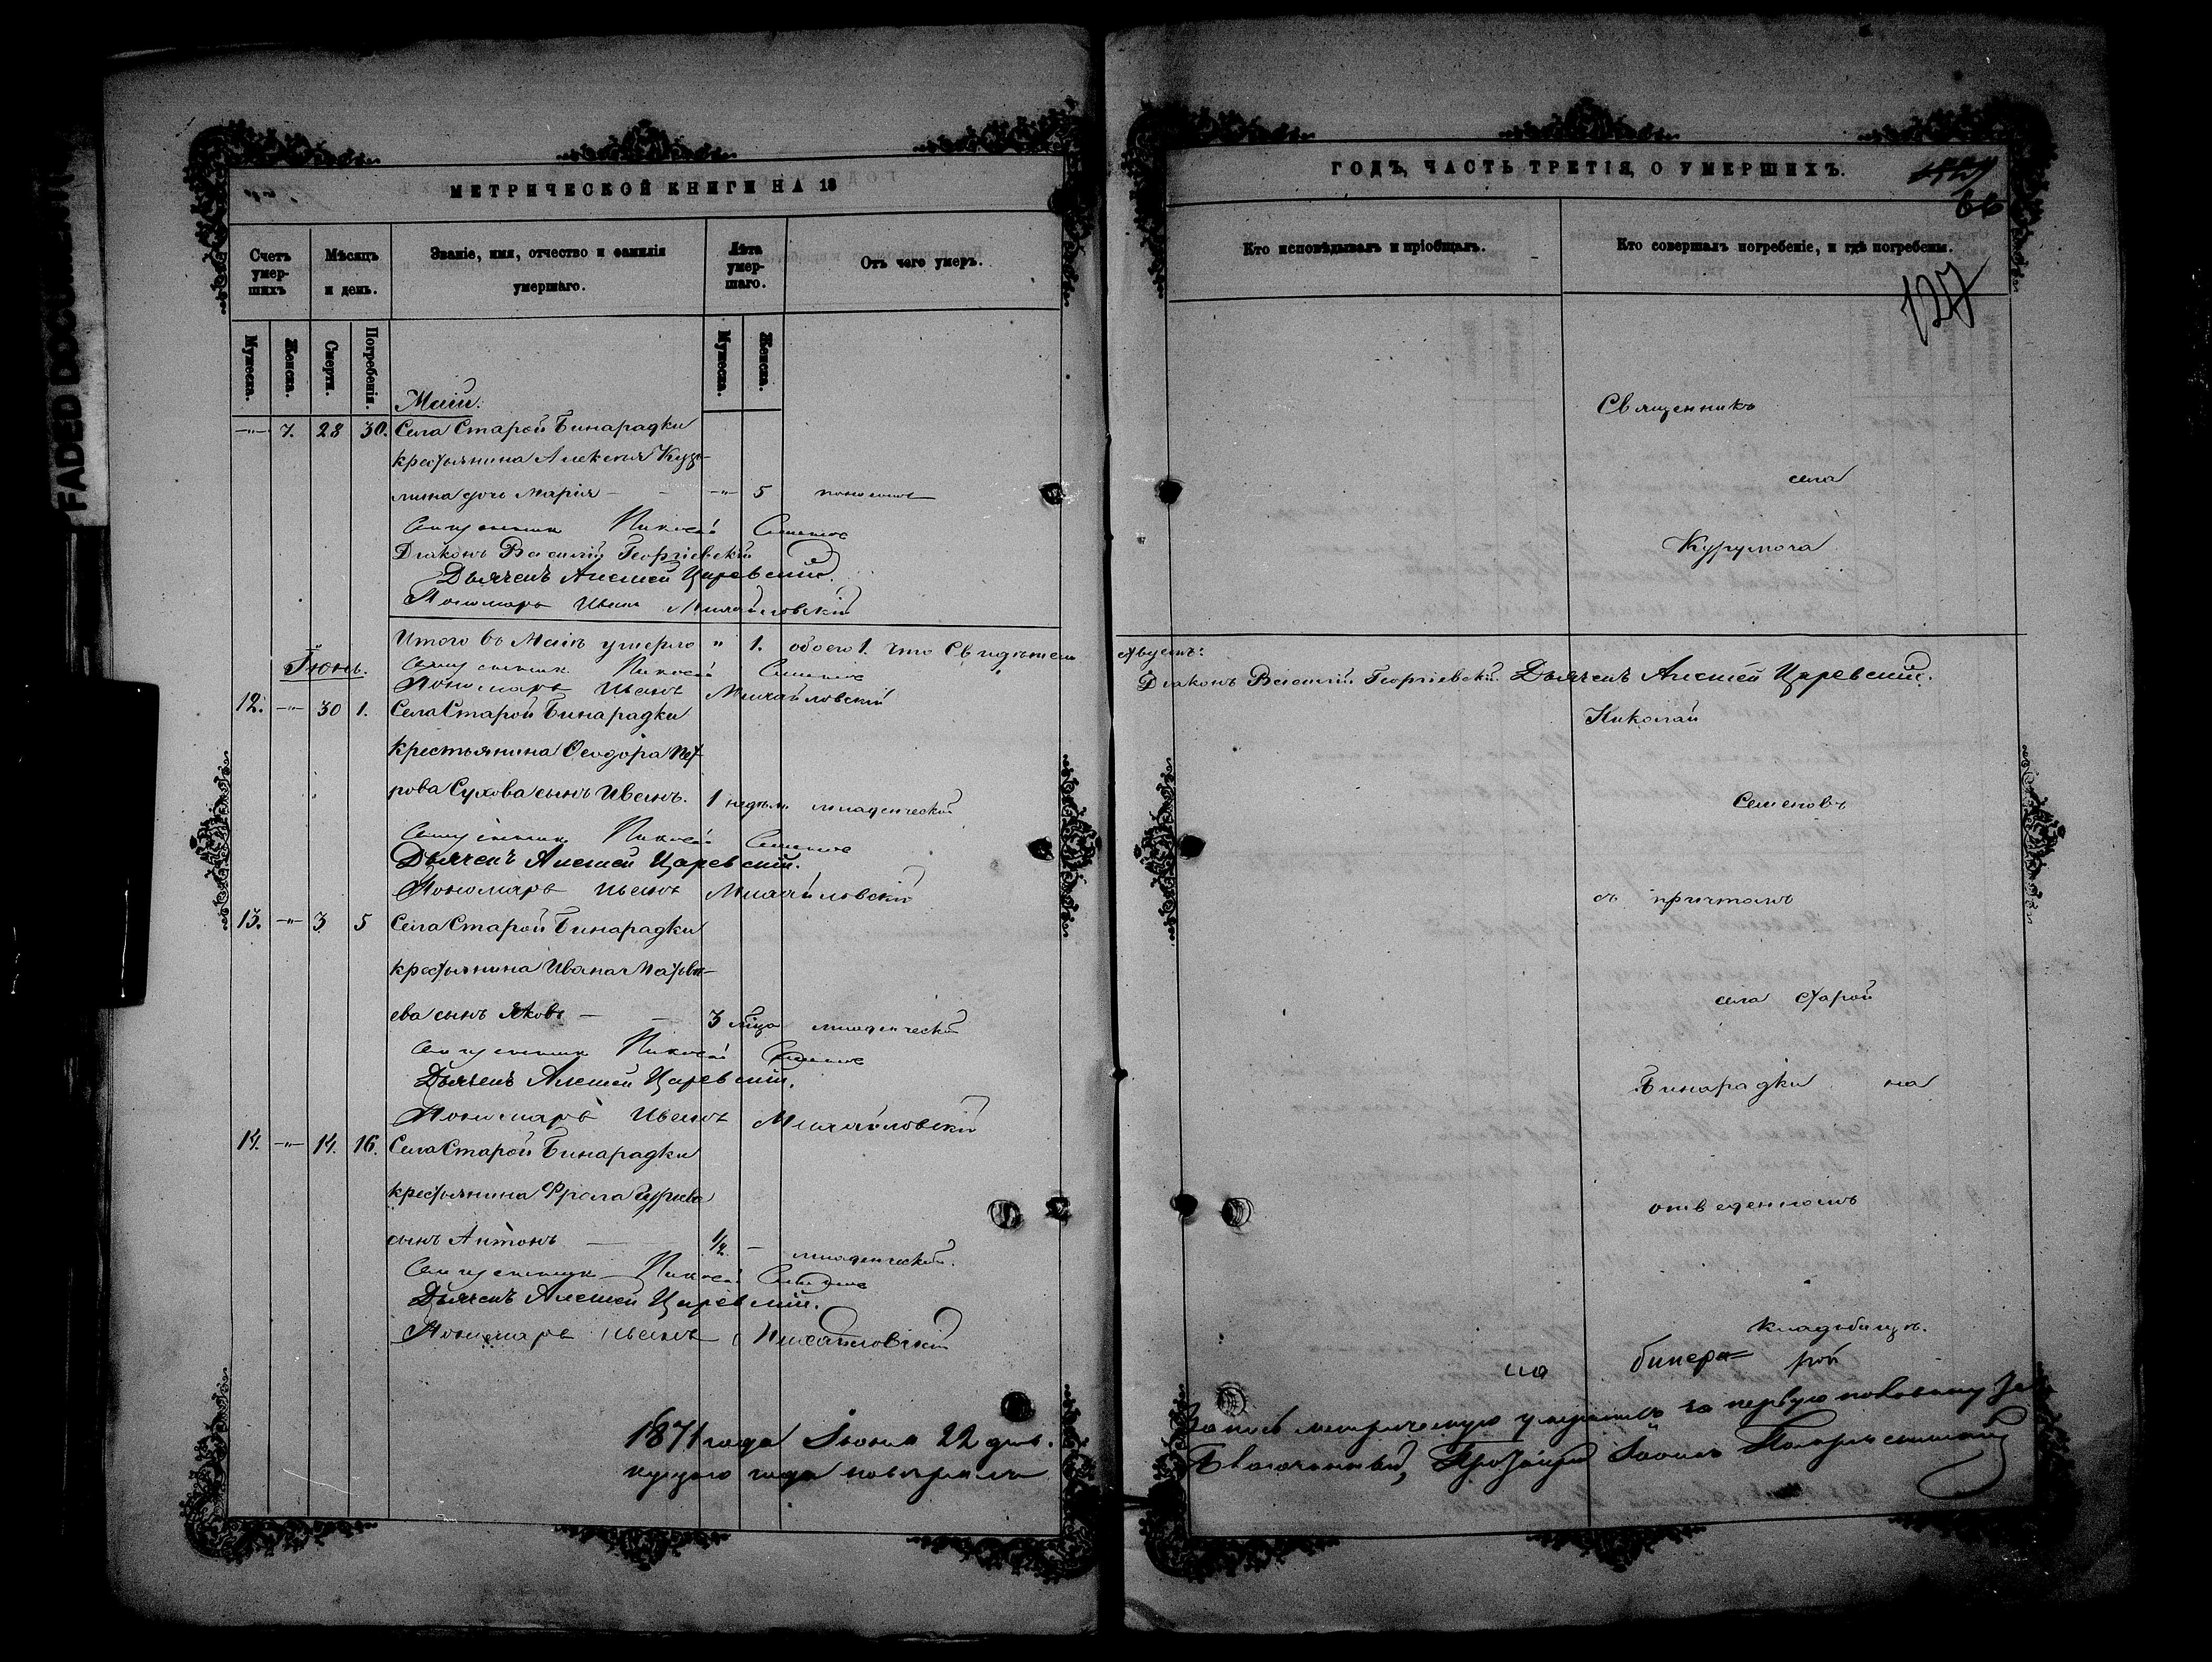 FADED DOCUMENT
МЕТРИЧЕСКОЙ КНИГИ НА 18
Счетъ умер-шихъ
Мѣсяцъ и день.
Званіе, имя, отчество и фамилія умершаго.
Лѣта умер-шаго.
Отъ чего умеръ.
Мужеска. Женска. Смерти. Погребенія. Мужеска. Женска.
Маій.
—"— 7. 28 30. Села Старой Бинарадки
крестьянина Алексѣя Кузь-
мина дочь Марія — — —"— 5
Священник Николай Семенов
Діаконъ Василій Георгіевскій
Дьячекъ Алексей Царевскій.
Пономарь Иванъ Михайловскій
Итого въ Маіѣ умерло " 1. обоего 1. Что свидѣтель
Іюнь.
Священник Николай Семенов
Пономарь Иванъ Михайловскій
12. —"— 30 1. Села Старой Бинарадки
крестьянина Ѳеодора Пет-
рова Сухова сынъ Иванъ. 1 недѣл. младенческой
Священник Николай Семенов
Дьячекъ Алексей Царевскій.
Пономарь Иванъ Михайловскій
13. —"— 3 5 Села Старой Бинарадки
крестьянина Ивана Матве-
ева сынъ Яковъ — — 3 м͠ца младенческой
Священник Николай Семенов
Дьячекъ Алексей Царевскій.
Пономарь Иванъ Михайловскій
14. —"— 14. 16. Села Старой Бинарадки
крестьянина Фрола
сынъ Антонъ — 1/2 — младенческой.
Священник Николай Семенов
Дьячекъ Алексей Царевскій.
Пономарь Иванъ Михайловскій
1871 года Іюня 22 дня.
года повѣрялъ
ГОДЪ, ЧАСТЬ ТРЕТІЯ, О УМЕРШИХЪ.
66
Кто исповѣдывалъ и пріобщалъ.
Кто совершалъ погребеніе, и гдѣ погребены.
127
Священникъ
села
Курумоча
Діаконъ Василій Георгіевскій. Дьячекъ Алексей Царевскій.
Николай
Семеновъ
съ причтомъ
села Старой
Бинарадки на
отведенномъ
кладбищѣ.
Запись метрическую умершихъ за первую половину
Благочинный,